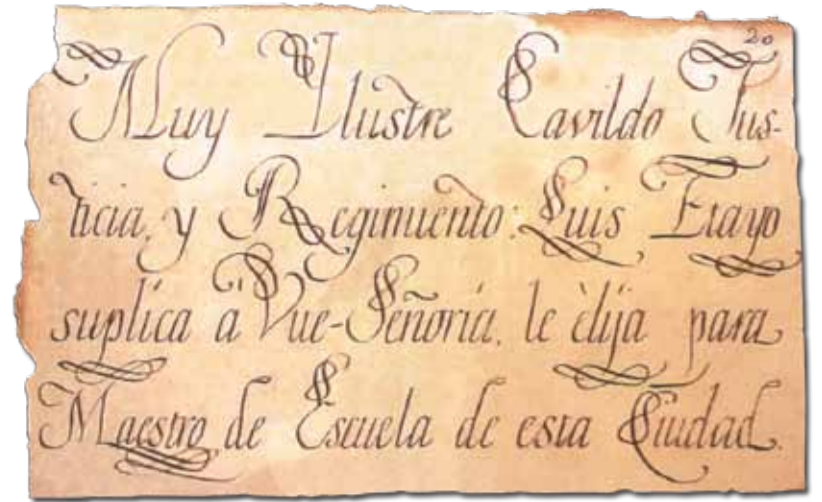 20
Muy Ilustre Cavildo Jus-
ticia, y Regimiento: Luis Erayo
suplica â Vue-Señoria, le èlija para
Maestro de Escuela de esta Ciudad.